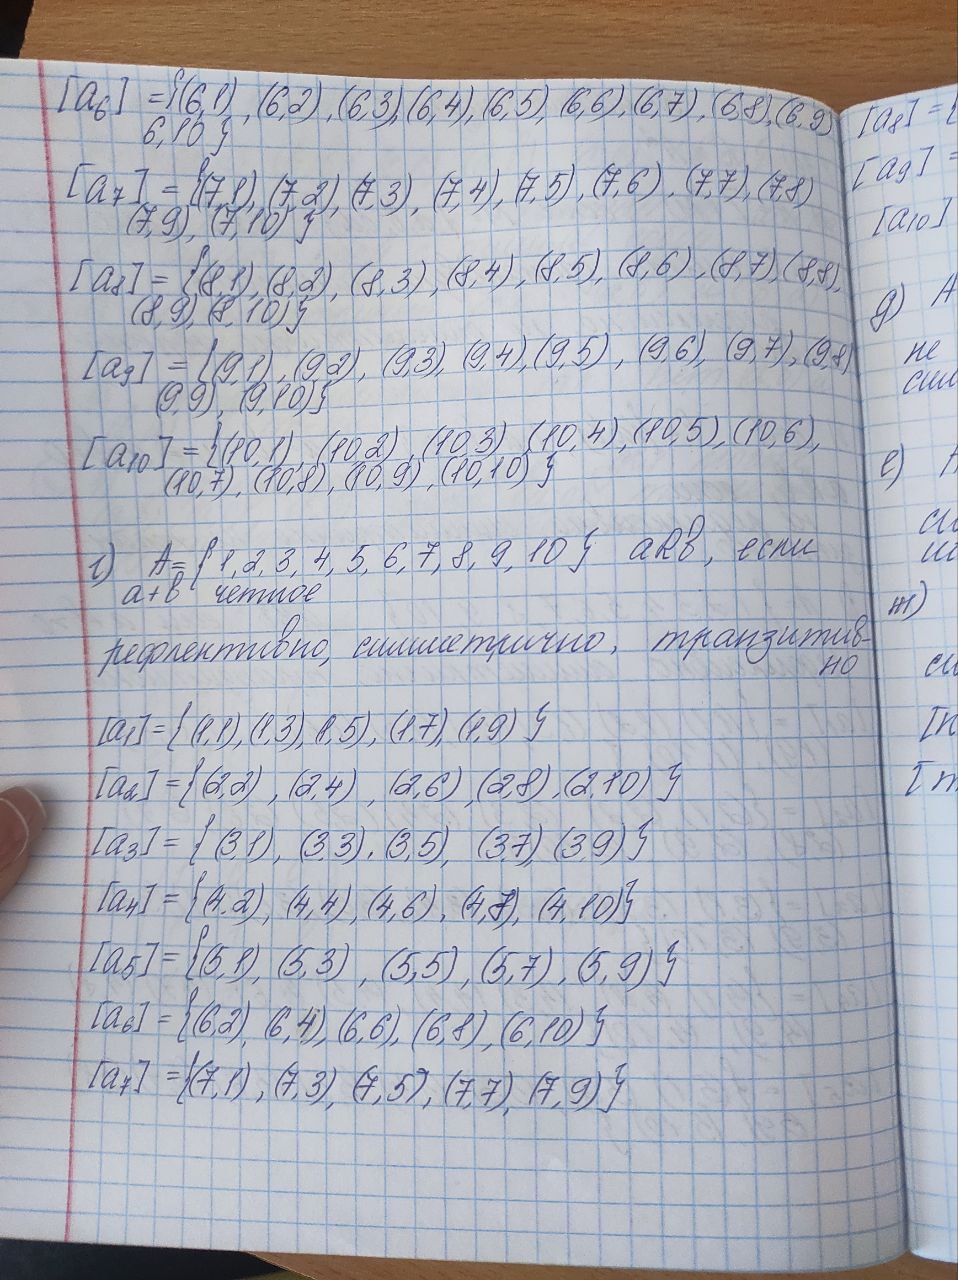 [a6] = {(6,1), (6,2), (6,3), (6,4), (6,5), (6,6), (6,7), (6,8), (6,9)
6,10}
[a7] = {(7,1), (7,2), (7,3), (7,4), (7,5), (7,6), (7,7), (7,8)
(7,9), (7,10)}
[a8] = {(8,1), (8,2), (8,3), (8,4), (8,5), (8,6), (8,7), (8,8),
(8,9), (8,10)}
[a9] = {(9,1), (9,2), (9,3), (9,4), (9,5), (9,6), (9,7), (9,8)
(9,9), (9,10)}
[a10] = {(10,1), (10,2), (10,3), (10,4), (10,5), (10,6),
(10,7), (10,8), (10,9), (10,10)}
г) A = {1, 2, 3, 4, 5, 6, 7, 8, 9, 10} aRb, если
a+b четное
рефлективно, симметрично, транзитив-
но
[a1] = {(1,1), (1,3), (1,5), (1,7), (1,9)}
[a2] = {(2,2), (2,4), (2,6), (2,8), (2,10)}
[a3] = {(3,1), (3,3), (3,5), (3,7) (3,9)}
[a4] = {(4,2), (4,4), (4,6), (4,8), (4,10)}
[a5] = {(5,1), (5,3), (5,5), (5,7), (5,9)}
[a6] = {(6,2), (6,4), (6,6), (6,8), (6,10)}
[a7] = {(7,1), (7,3), (7,5), (7,7), (7,9)}
[a8] = {
[a9] =
[a10]
д) A
не
сим
е) A
си
ж)
си
[n
[m